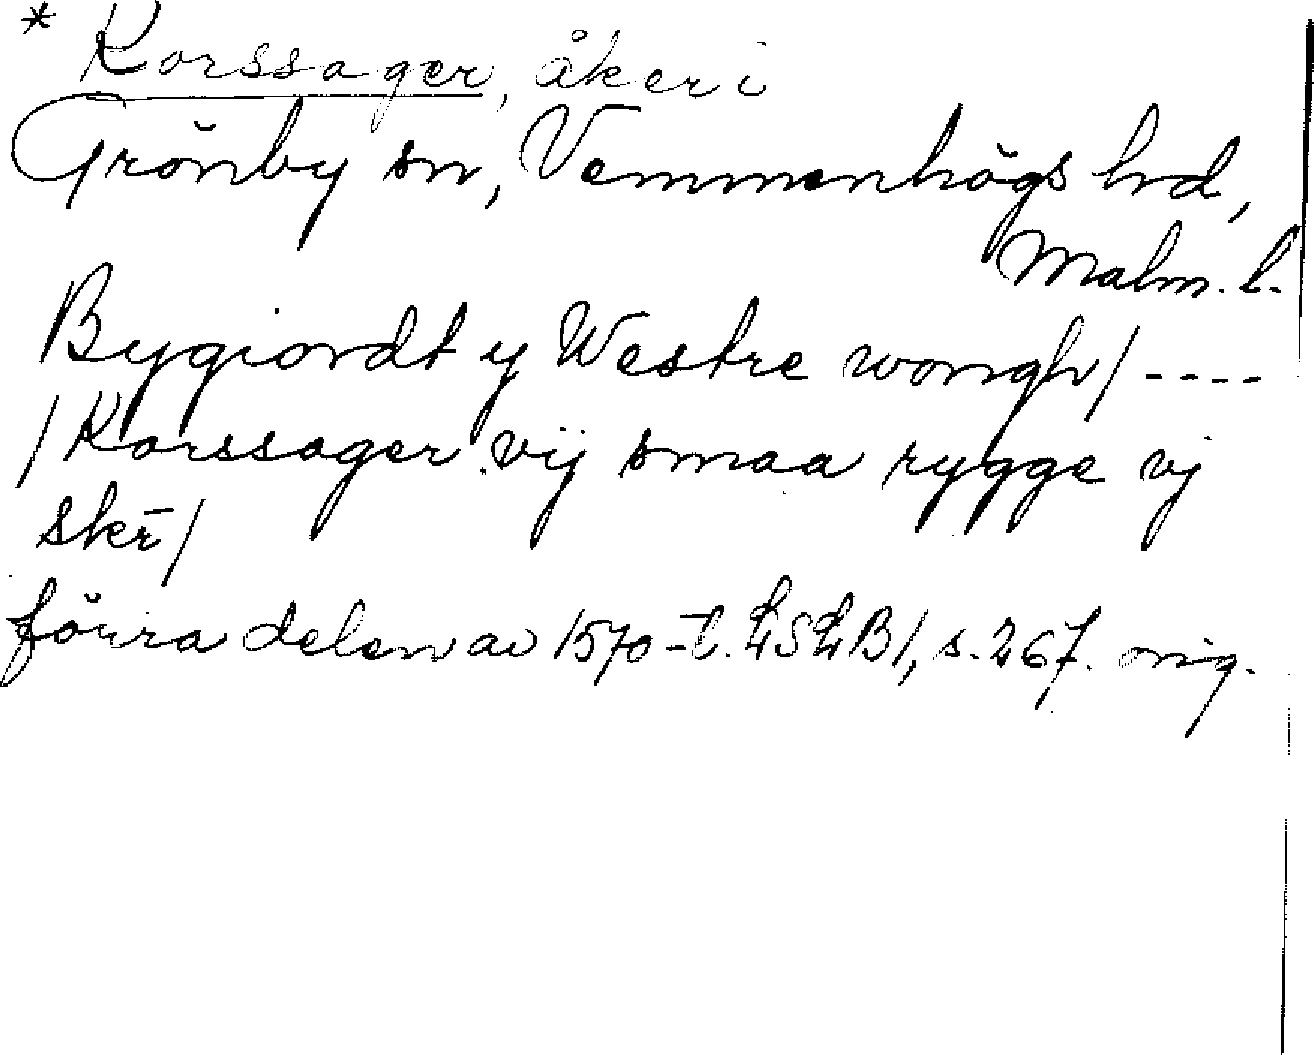 * Korssager, åker i
Grönby sn, Vemmenhögs hrd,
Malm. l.
Bygiordt y Westre wongh / ----
/ Korssager vij smaa rygge vj
skr̄ /
förra delen av 1570-t. LSLB1, s. 267. orig.